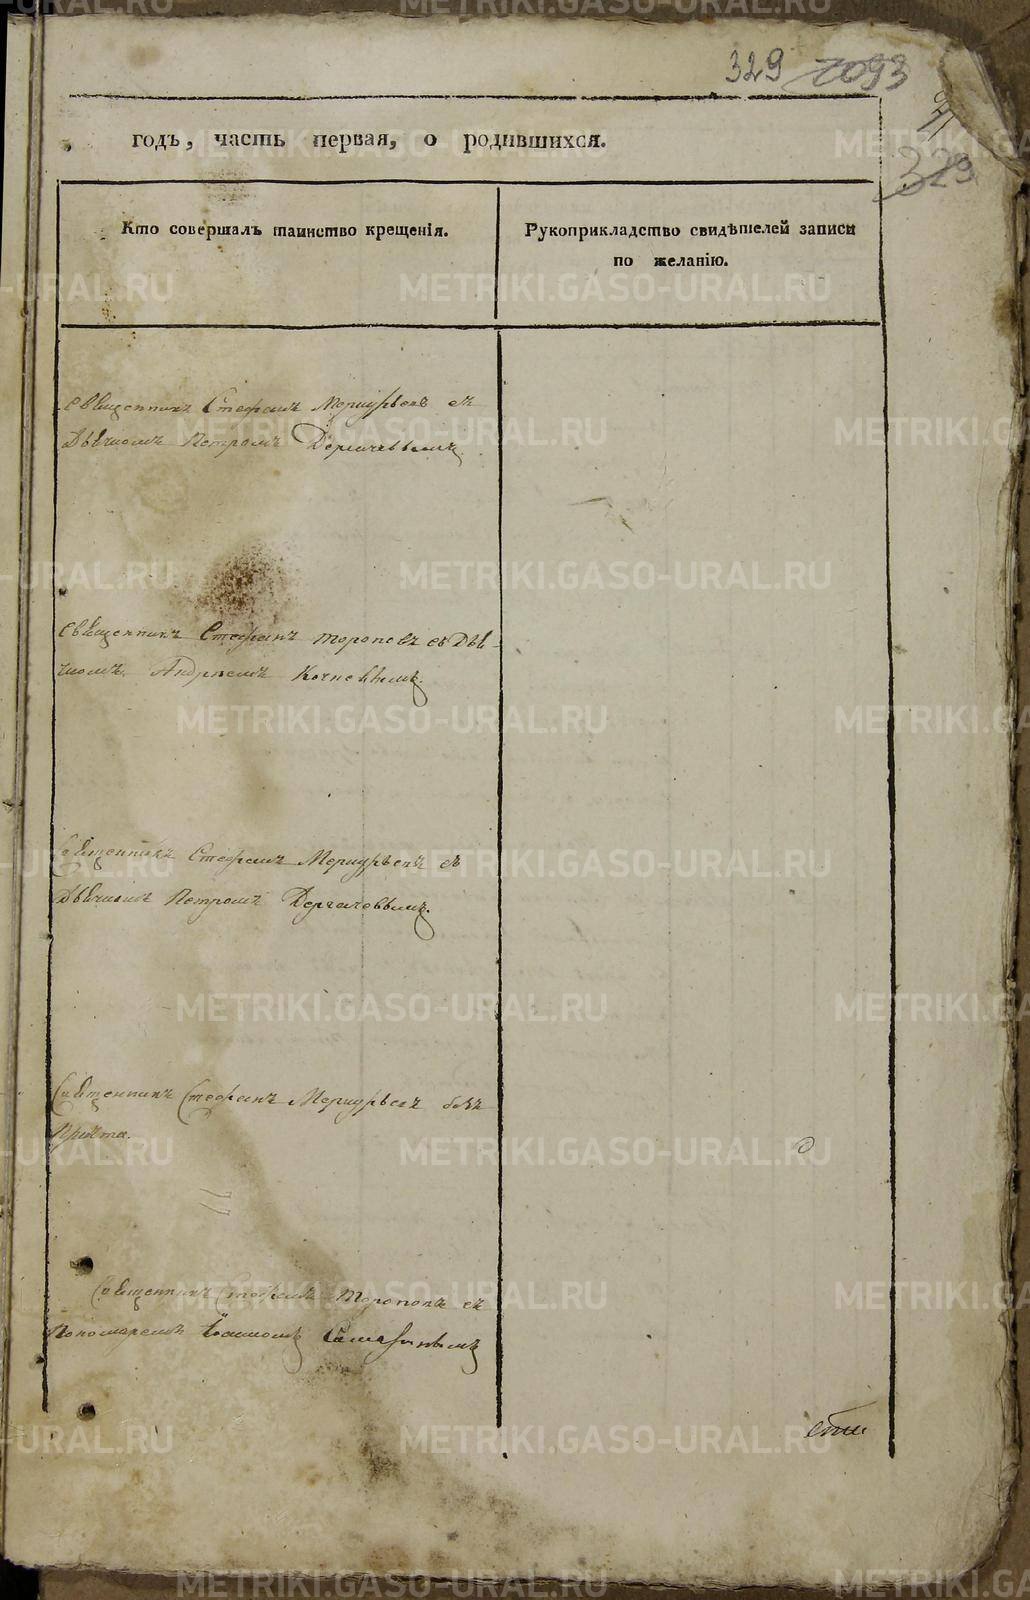 329 1093
329
годъ, часть первая, о родившихся.
Кто совершалъ таинство крещенія.
Рукоприкладство свидѣтелей записи
по желанію.
Священникъ Стефанъ Меркурьевъ съ
Дьячкомъ Петромъ Дергачевымъ.
Священникъ Стефанъ Тороповъ съ Дья-
чкомъ Андреемъ Кочневымъ.
Священникъ Стефанъ Меркурьевъ съ
Дьячкомъ Петромъ Дергачевымъ.
Священникъ Стефанъ Меркурьевъ безъ
Причта.
Священникъ Стефанъ Тороповъ съ
Пономаремъ Іоанномъ
METRIKI.GASO-URAL.RU